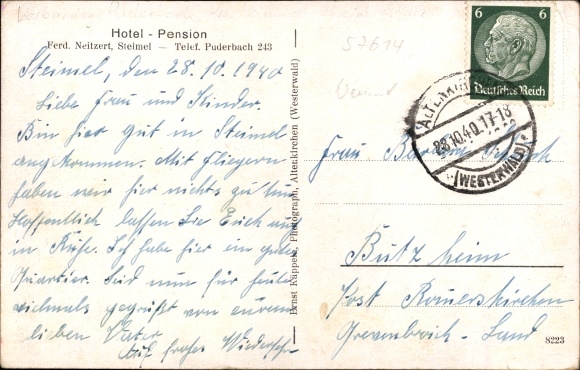 Hotel - Pension
Ferd. Neitzert, Steimel — Telef. Puderbach 243
57614
Steimel, den 28.10.1940
Liebe Frau und Kinder.
Bin hier gut in Steimel
angekommen. Mit Fliegern
haben wir hier nichts zu tun
Hoffentlich lassen Sie Euch auch
in Ruhe. Ich habe hier ein gutes
Quartier. Seid nun für heute
vielmals gegrüßt von eurem
lieben Vater
Auf frohes Wiedersehn
Ernst Käppele, Photograph, Altenkirchen (Westerwald)
6 6
Deutsches Reich
ALTENKIRCHEN
28.10.40.17-18
(WESTERWALD)
Frau
Butzheim
Post Rommerskirchen
Grevenbroich-Land
8223